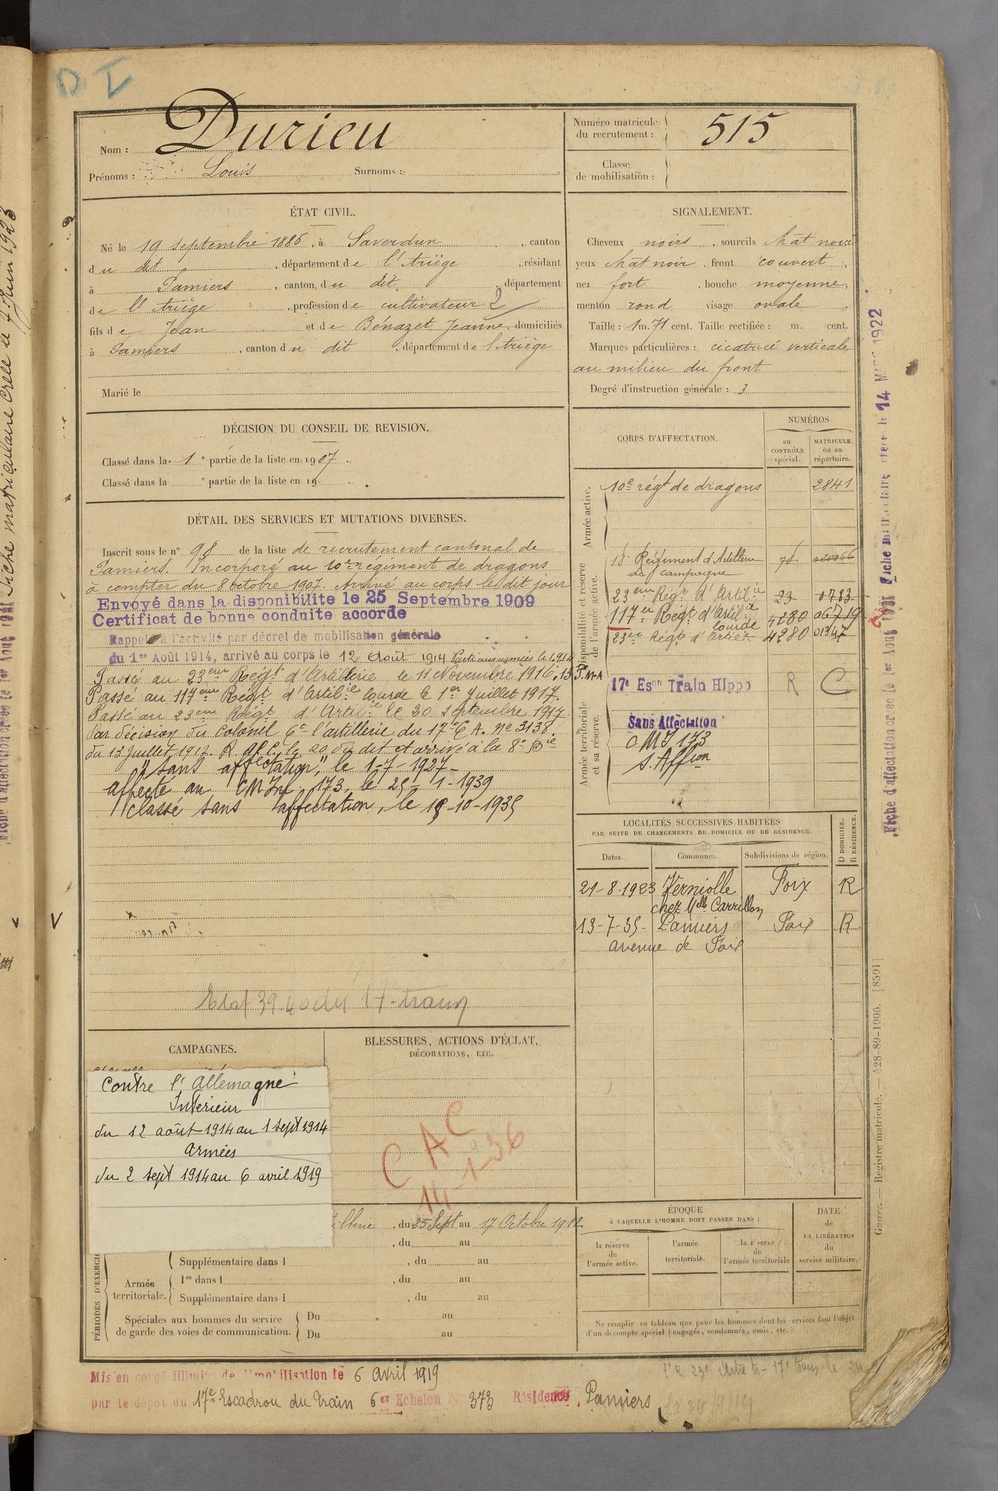 D I
Nom : Durieu
Prénoms : Louis Surnoms :
Numéro matricule du recrutement : 515
Classe de mobilisation :
ÉTAT CIVIL.
Né le 19 septembre 1886, à Saverdun, canton
du dit, département de l'Ariège, résidant
à Pamiers, canton du dit, département
de l'Ariège, profession de cultivateur 2
fils de Jean et de Bénazet Jeanne, domiciliés
à Pamiers, canton du dit, département de l'Ariège
Marié le
SIGNALEMENT.
Cheveux noirs, sourcils chat noir
yeux chat noir, front couvert,
nez fort, bouche moyenne,
menton rond visage ovale
Taille : 1 m. 71 cent. Taille rectifiée : m. cent.
Marques particulières : cicatrice verticale
au milieu du front
Degré d'instruction générale : 3
DÉCISION DU CONSEIL DE REVISION.
Classé dans la 1e partie de la liste en 1907.
Classé dans la e partie de la liste en 19 .
DÉTAIL DES SERVICES ET MUTATIONS DIVERSES.
Inscrit sous le n° 98 de la liste de recrutement cantonal de
Pamiers. Incorporé au 10e régiment de dragons
à compter du 8 octobre 1907. Arrivé au corps le dit jour
Envoyé dans la disponibilité le 25 Septembre 1909
Certificat de bonne conduite accordé
Rappelé à l'activité par décret de mobilisation générale
du 1er Août 1914, arrivé au corps le 12 Août 1914
Passé au 23ème Régt d'Artillerie le 11 Novembre 1916
Passé au 117ème Régt d'Artilie lourde le 1er Juillet 1917.
Passé au 23ème Régt d'Artilie le 30 septembre 1917
Par décision du Colonel Ct l'artillerie du 17e C.A. N° 3138
du 13 juillet 1917.
"sans affectation", le 1-7-1927
affecté au CM Inf 173, le 25-1-1939
Classé sans affectation, le 15-10-1935
Etat 39.40 du 17e train
CORPS D'AFFECTATION.
NUMÉROS
au CONTRÔLE spécial.
MATRICULE ou au répertoire.
Armée active.
10e régt de dragons 2841
Disponibilité et réserve de l'armée active.
18e Régiment d'Artillerie de campagne
23ème Régt d'Artilie
117e Regt d'Artilie lourde 4280 06719
23ème Régt d'Artie 4280 01347
Armée territoriale et sa réserve.
17e Eson Train Hippo R C
Sans Affectation
CMI 173
S. Affon
LOCALITÉS SUCCESSIVES HABITÉES
PAR SUITE DE CHANGEMENTS DE DOMICILE OU DE RÉSIDENCE.
Dates. Communes. Subdivisions de région. D DOMICILE, R RÉSIDENCE.
21-8-1923 Verniolle Foix R
chez Mlle Carrillon
13-7-35- Pamiers Foix R
avenue de Foix
CAMPAGNES.
Contre l'Allemagne
Intérieur
du 12 août 1914 au 1 sept 1914
Armées
du 2 sept 1914 au 6 avril 1919
BLESSURES, ACTIONS D'ÉCLAT,
DÉCORATIONS, ETC.
C A C
14-1-36
, du 25 Sept au 17 Octobre 1912
, du au
PÉRIODES D'EXERCICE
Supplémentaire dans l , du au
Armée territoriale. 1re dans l , du au
Supplémentaire dans l , du au
Spéciales aux hommes du service de garde des voies de communication. Du au
Du au
ÉPOQUE
À LAQUELLE L'HOMME DOIT PASSER DANS :
la réserve de l'armée active.
l'armée territoriale.
la réserve de l'armée territoriale
DATE de LA LIBÉRATION du service militaire.
Ne remplir ce tableau que pour les hommes dont les services font l'objet
d'un décompte spécial (engagés, condamnés, omis, etc.).
Mis en congé illimité de démobilisation le 6 avril 1919
par le dépôt du 17e Escadron du Train 6er Echelon N° 373 Résidence Pamiers
Guerre. — Registre matricule. — 428-89-1906. [8591]
Fiche matriculaire créée le 14 MARS 1922
Fiche d'affectation créée le 1er Août 1931
Fiche matriculaire créée le 7 Juin 1923